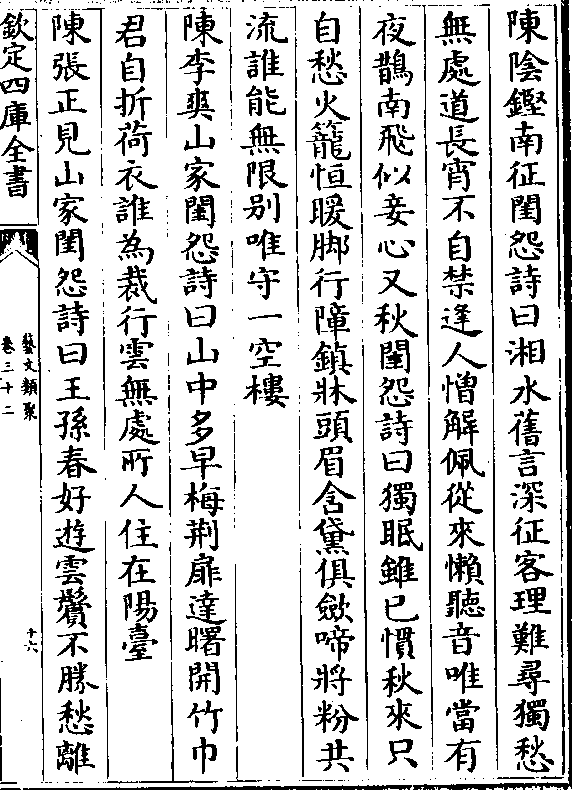 陳陰鏗南征閨怨詩曰湘水舊言深征客理難尋獨愁
無處道長宵不自禁逢人憎解佩從來懶聽音唯當有
夜鵲南飛似妾心又秋閨怨詩曰獨眠雖已慣秋來只
自愁火籠恒暖脚行障鎮牀頭眉含黛俱斂啼將粉共
流誰能無限别唯守一空樓
陳李爽山家閨怨詩曰山中多早梅荆扉達曙開竹巾
君自折荷衣誰為裁行雲無處所人住在陽臺
陳張正見山家閨怨詩曰王孫春好遊雲鬢不勝愁離
欽定四庫全書
藝文類聚
卷三十二
十六